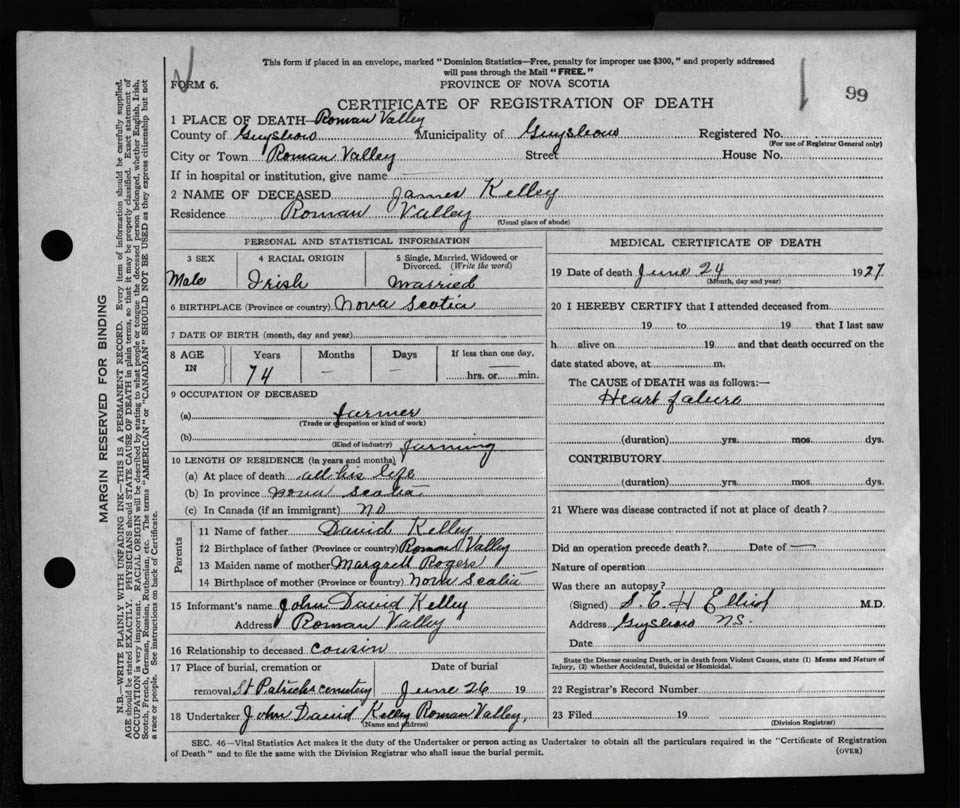 This form if placed in an envelope, marked "Dominion Statistics—Free, penalty for improper use $300," and properly addressed
will pass through the Mail "FREE."
FORM 6.
PROVINCE OF NOVA SCOTIA
99
CERTIFICATE OF REGISTRATION OF DEATH
1 PLACE OF DEATH—Roman Valley
County of Guysboro Municipality of Guysboro Registered No.
(For use of Registrar General only)
City or Town Roman Valley Street House No.
If in hospital or institution, give name
2 NAME OF DECEASED James Kelley
Residence Roman Valley
(Usual place of abode)
PERSONAL AND STATISTICAL INFORMATION
3 SEX 4 RACIAL ORIGIN 5 Single, Married, Widowed or Divorced. (Write the word)
Male Irish Married
6 BIRTHPLACE (Province or country) Nova Scotia
7 DATE OF BIRTH (month, day and year)
8 AGE IN Years Months Days If less than one day,
74 — — hrs. or min.
9 OCCUPATION OF DECEASED
(a) farmer
(Trade or occupation or kind of work)
(b) farming
(Kind of industry)
10 LENGTH OF RESIDENCE (in years and months)
(a) At place of death all his life
(b) In province nova scotia
(c) In Canada (if an immigrant) no
Parents
11 Name of father David Kelley
12 Birthplace of father (Province or country) Roman Valley
13 Maiden name of mother Margrett Rogers
14 Birthplace of mother (Province or country) Nova Scotia
15 Informant's name John David Kelley
Address Roman Valley
16 Relationship to deceased cousin
17 Place of burial, cremation or Date of burial
removal St. Patricks cemetery June 26 19
18 Undertaker John David Kelley Roman Valley,
(Name and address)
MEDICAL CERTIFICATE OF DEATH
19 Date of death June 24 1927
(Month, day and year)
20 I HEREBY CERTIFY that I attended deceased from
19 to 19 that I last saw
h alive on 19 and that death occurred on the
date stated above, at m.
The CAUSE of DEATH was as follows:—
Heart falure
(duration) yrs. mos. dys.
CONTRIBUTORY
(duration) yrs. mos. dys.
21 Where was disease contracted if not at place of death?
Did an operation precede death? Date of —
Nature of operation
Was there an autopsy?
(Signed) M.D.
Address Guysboro NS.
Date
State the Disease causing Death, or in death from Violent Causes, state (1) Means and Nature of
Injury, (2) whether Accidental, Suicidal or Homicidal.
22 Registrar's Record Number
23 Filed 19
(Division Registrar)
SEC. 46—Vital Statistics Act makes it the duty of the Undertaker or person acting as Undertaker to obtain all the particulars required in the "Certificate of Registration
of Death" and to file the same with the Division Registrar who shall issue the burial permit.
(OVER)
MARGIN RESERVED FOR BINDING
N.B.—WRITE PLAINLY WITH UNFADING INK—THIS IS A PERMANENT RECORD. Every item of information should be carefully supplied.
AGE should be stated EXACTLY. PHYSICIANS should STATE CAUSE OF DEATH in plain terms, so that it may be properly classified. Exact statement of
OCCUPATION is very important. RACIAL ORIGIN will be described by stating to what people or tongue the deceased person belonged, whether English, Irish,
Scotch, French, German, Russian, Ruthenian, etc. The terms "AMERICAN" or "CANADIAN" SHOULD NOT BE USED as they express citizenship but not
a race or people. See instructions on back of Certificate.